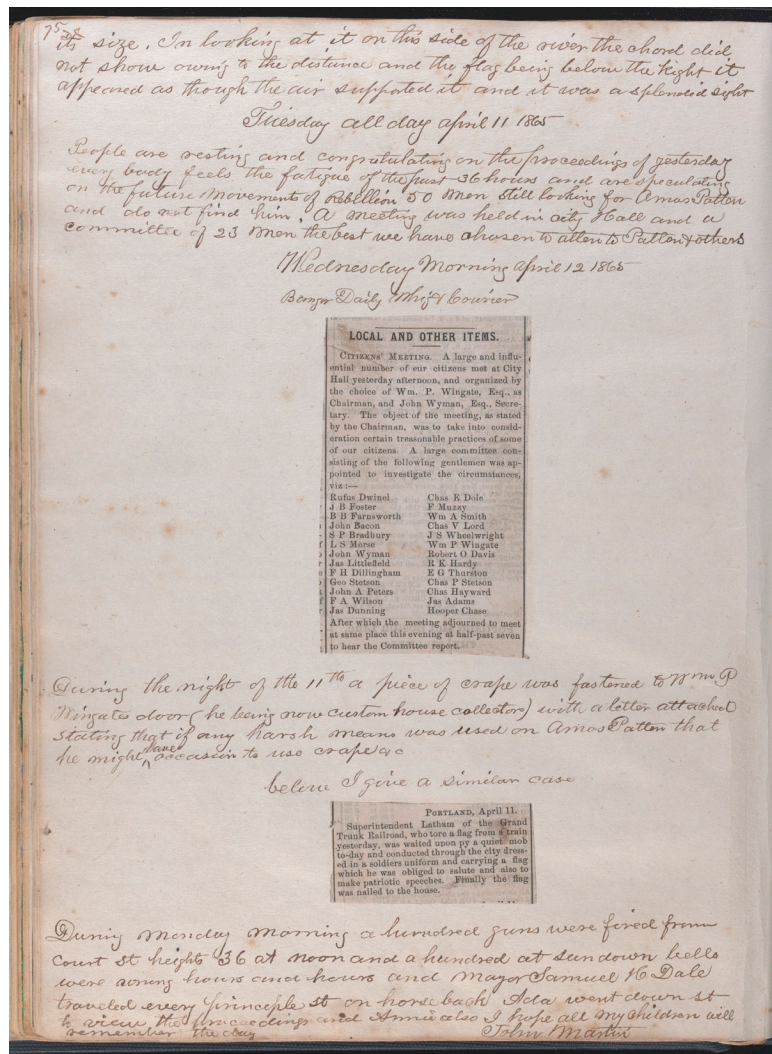 75
its size. In looking at it on this side of the river the chord did
not show owing to the distance and the flag being below the Kight it
appeared as though the air supported it and it was a splendid sight
Tuesday all day april 11 1865
People are resting and congratulating on the proceedings of yesterday
every body feels the fatigue of the past 36 hours and are speculating
on the future movements of Rebellion 50 men still looking for Amos Patten
and do not find him. A meeting was held in city Hall and a
committee of 23 men the best we have chosen to atten to Patten & others
Wednesday Morning april 12 1865
Bangor Daily Whig & Courier
LOCAL AND OTHER ITEMS.
CITIZENS' MEETING. A large and influ-
ential number of our citizens met at City
Hall yesterday afternoon, and organized by
the choice of Wm. P. Wingate, Esq., as
Chairman, and John Wyman, Esq., Secre-
tary. The object of the meeting, as stated
by the Chairman, was to take into consid-
eration certain treasonable practices of some
of our citizens. A large committee con-
sisting of the following gentlemen was ap-
pointed to investigate the circumstances,
viz:—
Rufus Dwinel Chas E Dole
J B Foster F Muzzy
B B Farnsworth Wm A Smith
John Bacon Chas V Lord
S P Bradbury J S Wheelwright
L S Morse Wm P Wingate
John Wyman Robert O Davis
Jas Littlefield R K Hardy
F H Dillingham E G Thurston
Geo Stetson Chas P Stetson
John A Peters Chas Hayward
F A Wilson Jas Adams
Jas Dunning Hooper Chase
After which the meeting adjourned to meet
at same place this evening at half-past seven
to hear the Committee report.
During the night of the 11th a piece of crape was fastened to Wm. P
Wingates door (he being now custom house collector) with a letter attached
stating that if any harsh means was used on Amos Patten that
he might have occasion to use crape &c
below I give a similar case
PORTLAND, April 11.
Superintendent Latham of the Grand
Trunk Railroad, who tore a flag from a train
yesterday, was waited upon py a quiet mob
to-day and conducted through the city dress-
ed in a soldiers uniform and carrying a flag
which he was obliged to salute and also to
make patriotic speeches. Finally the flag
was nailed to the house.
During Monday morning a hundred guns were fired from
Court St heights 36 at noon and a hundred at sundown bells
were wrung hours and hours and Mayor Samuel H Dale
traveled every principle st on horse back Ada went down st
to view the proceedings and Annie also I hope all my children will
remember the day John Martin